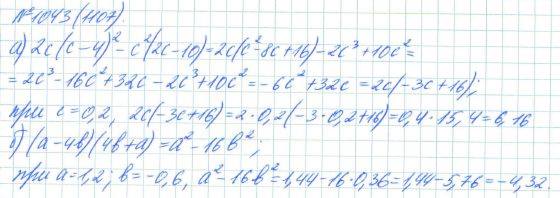 №1043(1107).
а) 2c(c-4)²-c²(2c-10)=2c(c²-8c+16)-2c³+10c²=
=2c³-16c²+32c-2c³+10c²=-6c²+32c=2c(-3c+16);
при c=0,2, 2c(-3c+16)=2·0,2(-3·0,2+16)=0,4·15,4=6,16
б) (a-4b)(4b+a)=a²-16b²;
при a=1,2; b=-0,6, a²-16b²=1,44-16·0,36=1,44-5,76=-4,32.